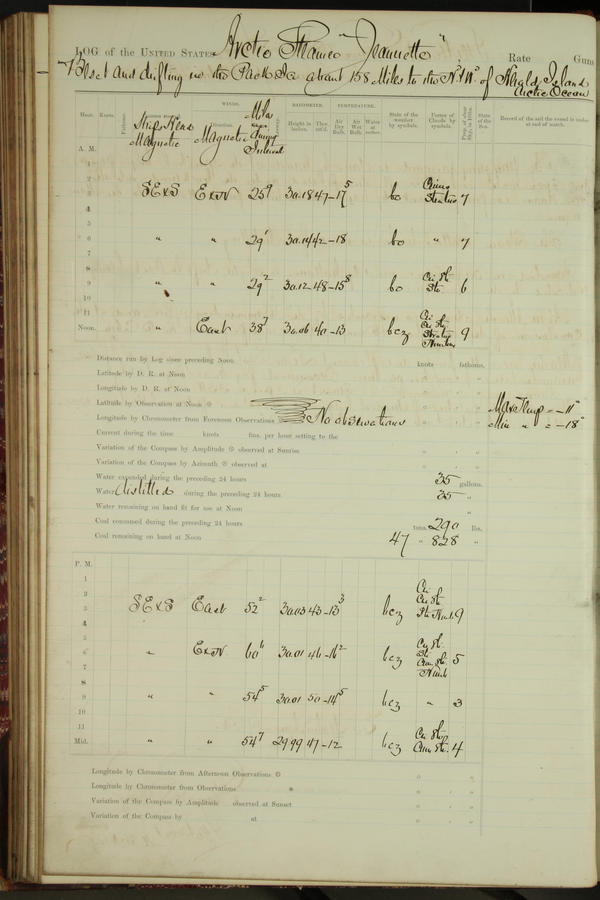 LOG of the UNITED STATES Arctic Steamer "Jeannette" Rate Guns
Beset and drifting in the Pack Ice about 158 Miles to the N'd & W'd of Herald Island
Arctic Ocean
Hour. Knots. Fathoms. Ship's Head Magnetic WINDS. Direction. Magnetic Miles during Interval BAROMETER. Height in inches. Ther. att'd. TEMPERATURE. Air Dry Bulb. Air Wet Bulb. Water at surface. State of the weather by symbols. Forms of Clouds by symbols. Prop. of clear Sky, in 10ths. State of the Sea. Record of the sail the vessel is under at end of watch.
A. M.
1
2
3 SE x S E x N 25 9 30.18 47 -17 5 bc Cirrus Stratus 7
4
5
6 " " 29 1 30.14 42 -18 bc " 7
7
8
9 " " 29 2 30.12 48 -15 8 bc Cir St Str 6
10
11
Noon. " East 38 7 30.06 40 -13 bcz Cir Cir St Stratus Nimbus 9
Distance run by Log since preceding Noon knots fathoms.
Latitude by D. R. at Noon
Longitude by D. R. at Noon
Latitude by Observation at Noon Max Temp = -11°
Longitude by Chronometer from Forenoon Observations No observations Min " = -18°
Current during the time knots fms. per hour setting to the
Variation of the Compass by Amplitude observed at Sunrise
Variation of the Compass by Azimuth observed at
Water expended during the preceding 24 hours 35 gallons.
Water distilled during the preceding 24 hours 35 "
Water remaining on hand fit for use at Noon "
Coal consumed during the preceding 24 hours tons. 290 lbs.
Coal remaining on hand at Noon 47 " 828 "
P. M.
1
2
3 SE x S East 52 2 30.03 43 -13 3 bcz Cir Cir St Str Nimb 9
4
5
6 " E x N 60 6 30.01 46 -16 2 bcz Cir St Str Cum St. Nimb 5
7
8
9 " " 54 5 30.01 50 -14 5 bcz " 3
10
11
Mid. " " 54 7 29.99 47 -12 bcz Cir St Cum St. 4
Longitude by Chronometer from Afternoon Observations
Longitude by Chronometer from Observations
Variation of the Compass by Amplitude observed at Sunset
Variation of the Compass by at